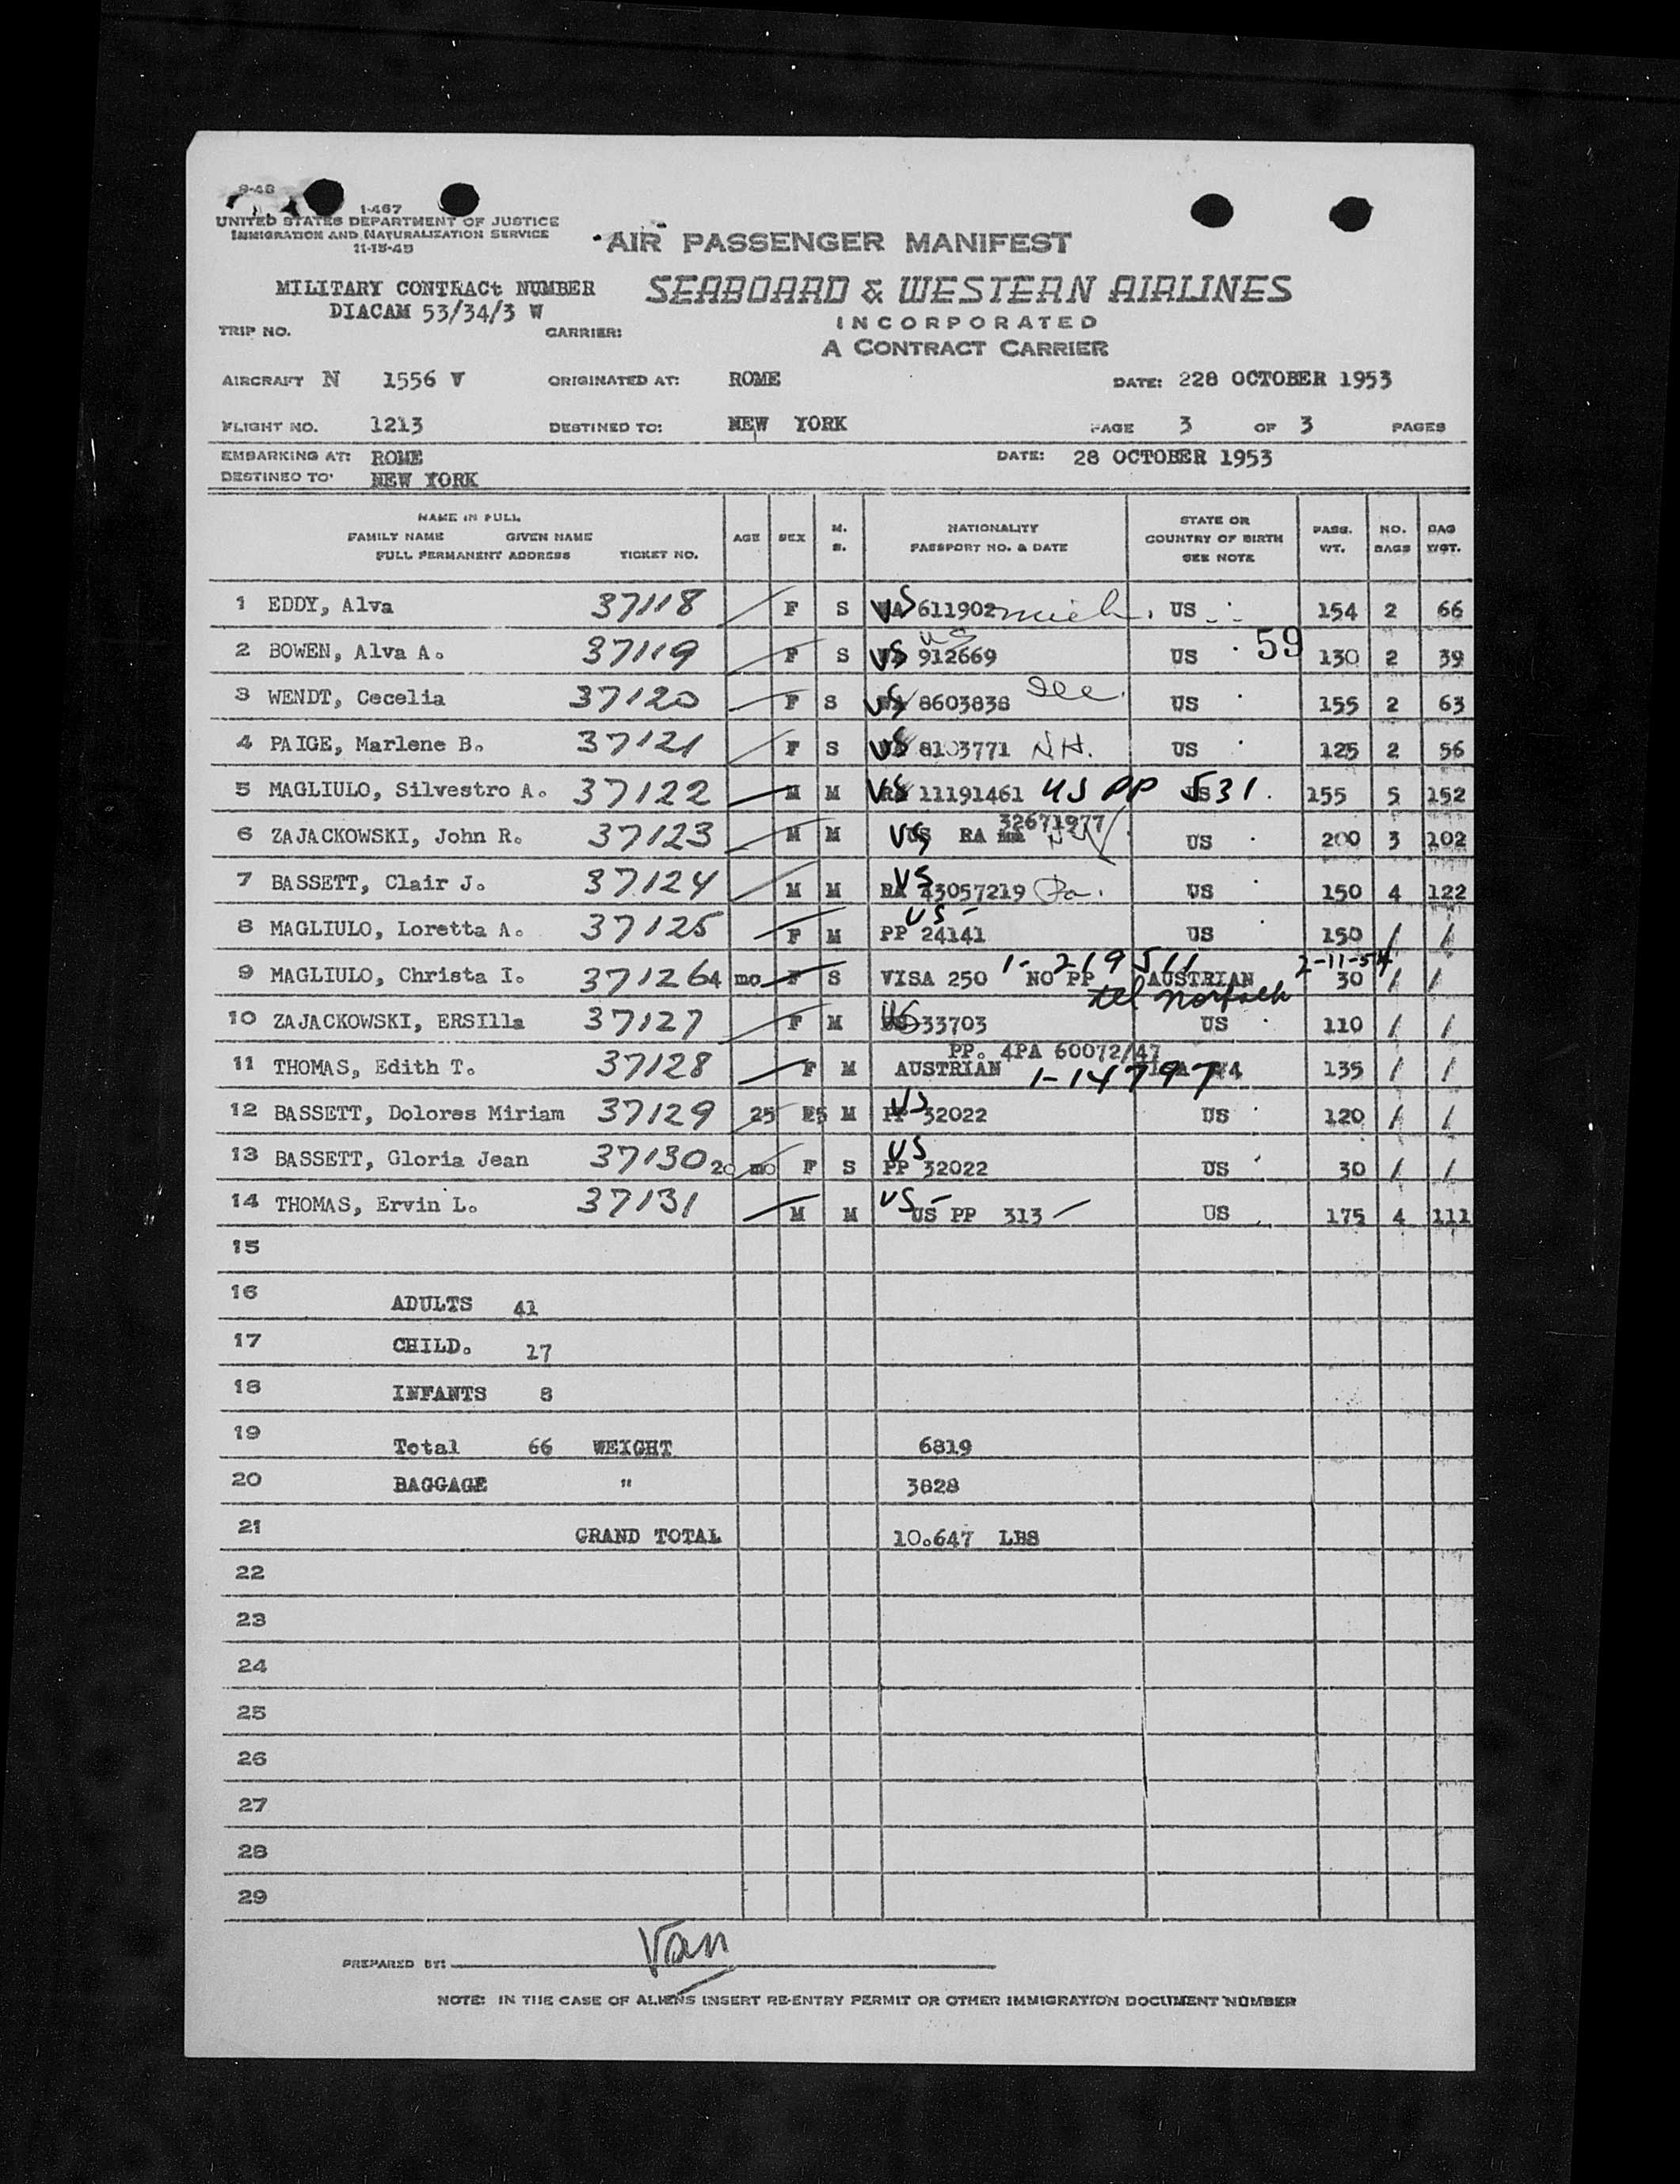 9-48
1-467
UNITED STATES DEPARTMENT OF JUSTICE
IMMIGRATION AND NATURALIZATION SERVICE
11-15-45
AIR PASSENGER MANIFEST
MILITARY CONTRACt NUMBER
DIACAM 53/34/3 W
SEABOARD & WESTERN AIRLINES
INCORPORATED
A CONTRACT CARRIER
TRIP NO. CARRIER:
AIRCRAFT N 1556 V ORIGINATED AT: ROME DATE: 228 OCTOBER 1953
FLIGHT NO. 1213 DESTINED TO: NEW YORK PAGE 3 OF 3 PAGES
EMBARKING AT: ROME DATE: 28 OCTOBER 1953
DESTINED TO: NEW YORK
NAME IN FULL
FAMILY NAME GIVEN NAME
FULL PERMANENT ADDRESS TICKET NO. AGE SEX M. S. NATIONALITY PASSPORT NO. & DATE STATE OR COUNTRY OF BIRTH SEE NOTE PASS. WT. NO. BAGS BAG WGT.
1 EDDY, Alva 37118 F S US 611902 Mich. US 154 2 66
2 BOWEN, Alva A. 37119 F S US 912669 US US 59 130 2 39
3 WENDT, Cecelia 37120 F S US 8603838 Ill. US 155 2 63
4 PAIGE, Marlene B. 37121 F S US 8103771 N.H. US 125 2 56
5 MAGLIULO, Silvestro A. 37122 M M US 11191461 US PP 531. 155 5 152
6 ZAJACKOWSKI, John R. 37123 M M US RA 32671977 US 200 3 102
7 BASSETT, Clair J. 37124 M M US RA 43057219 Pa. US 150 4 122
8 MAGLIULO, Loretta A. 37125 F M US PP 24141 US 150 / /
9 MAGLIULO, Christa I. 37126 4 mo F S VISA 250 NO PP 1-219511 AUSTRIAN 2-11-54 30 / /
tel Norfolk
10 ZAJACKOWSKI, ERSIlla 37127 F M US 33703 US 110 / /
11 THOMAS, Edith T. 37128 F M AUSTRIAN PP. 4PA 60072/47 1-14797 135 / /
12 BASSETT, Dolores Miriam 37129 25 M US PP 32022 US 120 / /
13 BASSETT, Gloria Jean 37130 20 mo F S US PP 32022 US 30 / /
14 THOMAS, Ervin L. 37131 M M US US PP 313 US 175 4 111
15
16 ADULTS 41
17 CHILD. 17
18 INFANTS 8
19 Total 66 WEIGHT 6819
20 BAGGAGE " 3828
21 GRAND TOTAL 10.647 LBS
22
23
24
25
26
27
28
29
PREPARED BY: Van
NOTE: IN THE CASE OF ALIENS INSERT RE-ENTRY PERMIT OR OTHER IMMIGRATION DOCUMENT NUMBER